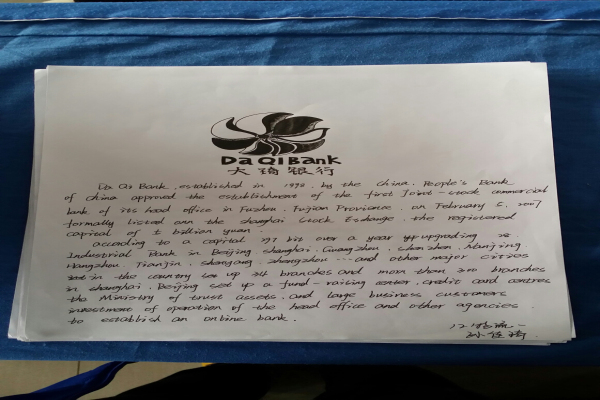 Da Qi Bank
大琦银行
Da Qi Bank, established in 1998, by the China. People's Bank
of China approved the establishment of the first Joint-stock commercial
bank of its head office in Fuzhou, Fujian Province, on February 5, 2007
formally listed onn the shanghai Stock Exchange. the registered
capital of billion yuan.
according to a capital bit over a year upgrading
Industrial Bank in Beijing shanghai, Guangzhou, shenzhen, Nanjing
Hangzhou Tianjin, shenyang, zhengzhou ... and other major citise
in the country set up 34 branches and more them 300 branches
in shanghai, Beijing set up a fund-raising center, credit card centres
the Ministry of trust assets. and large business customers
investment of operation of the head office and other agencies
to establish an online bank.